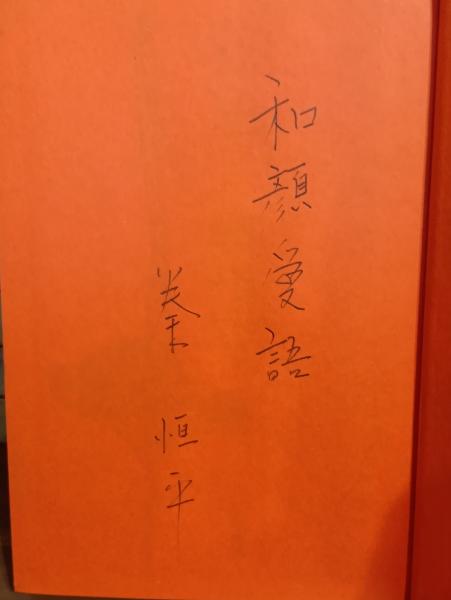 和顔愛語
秦恒平